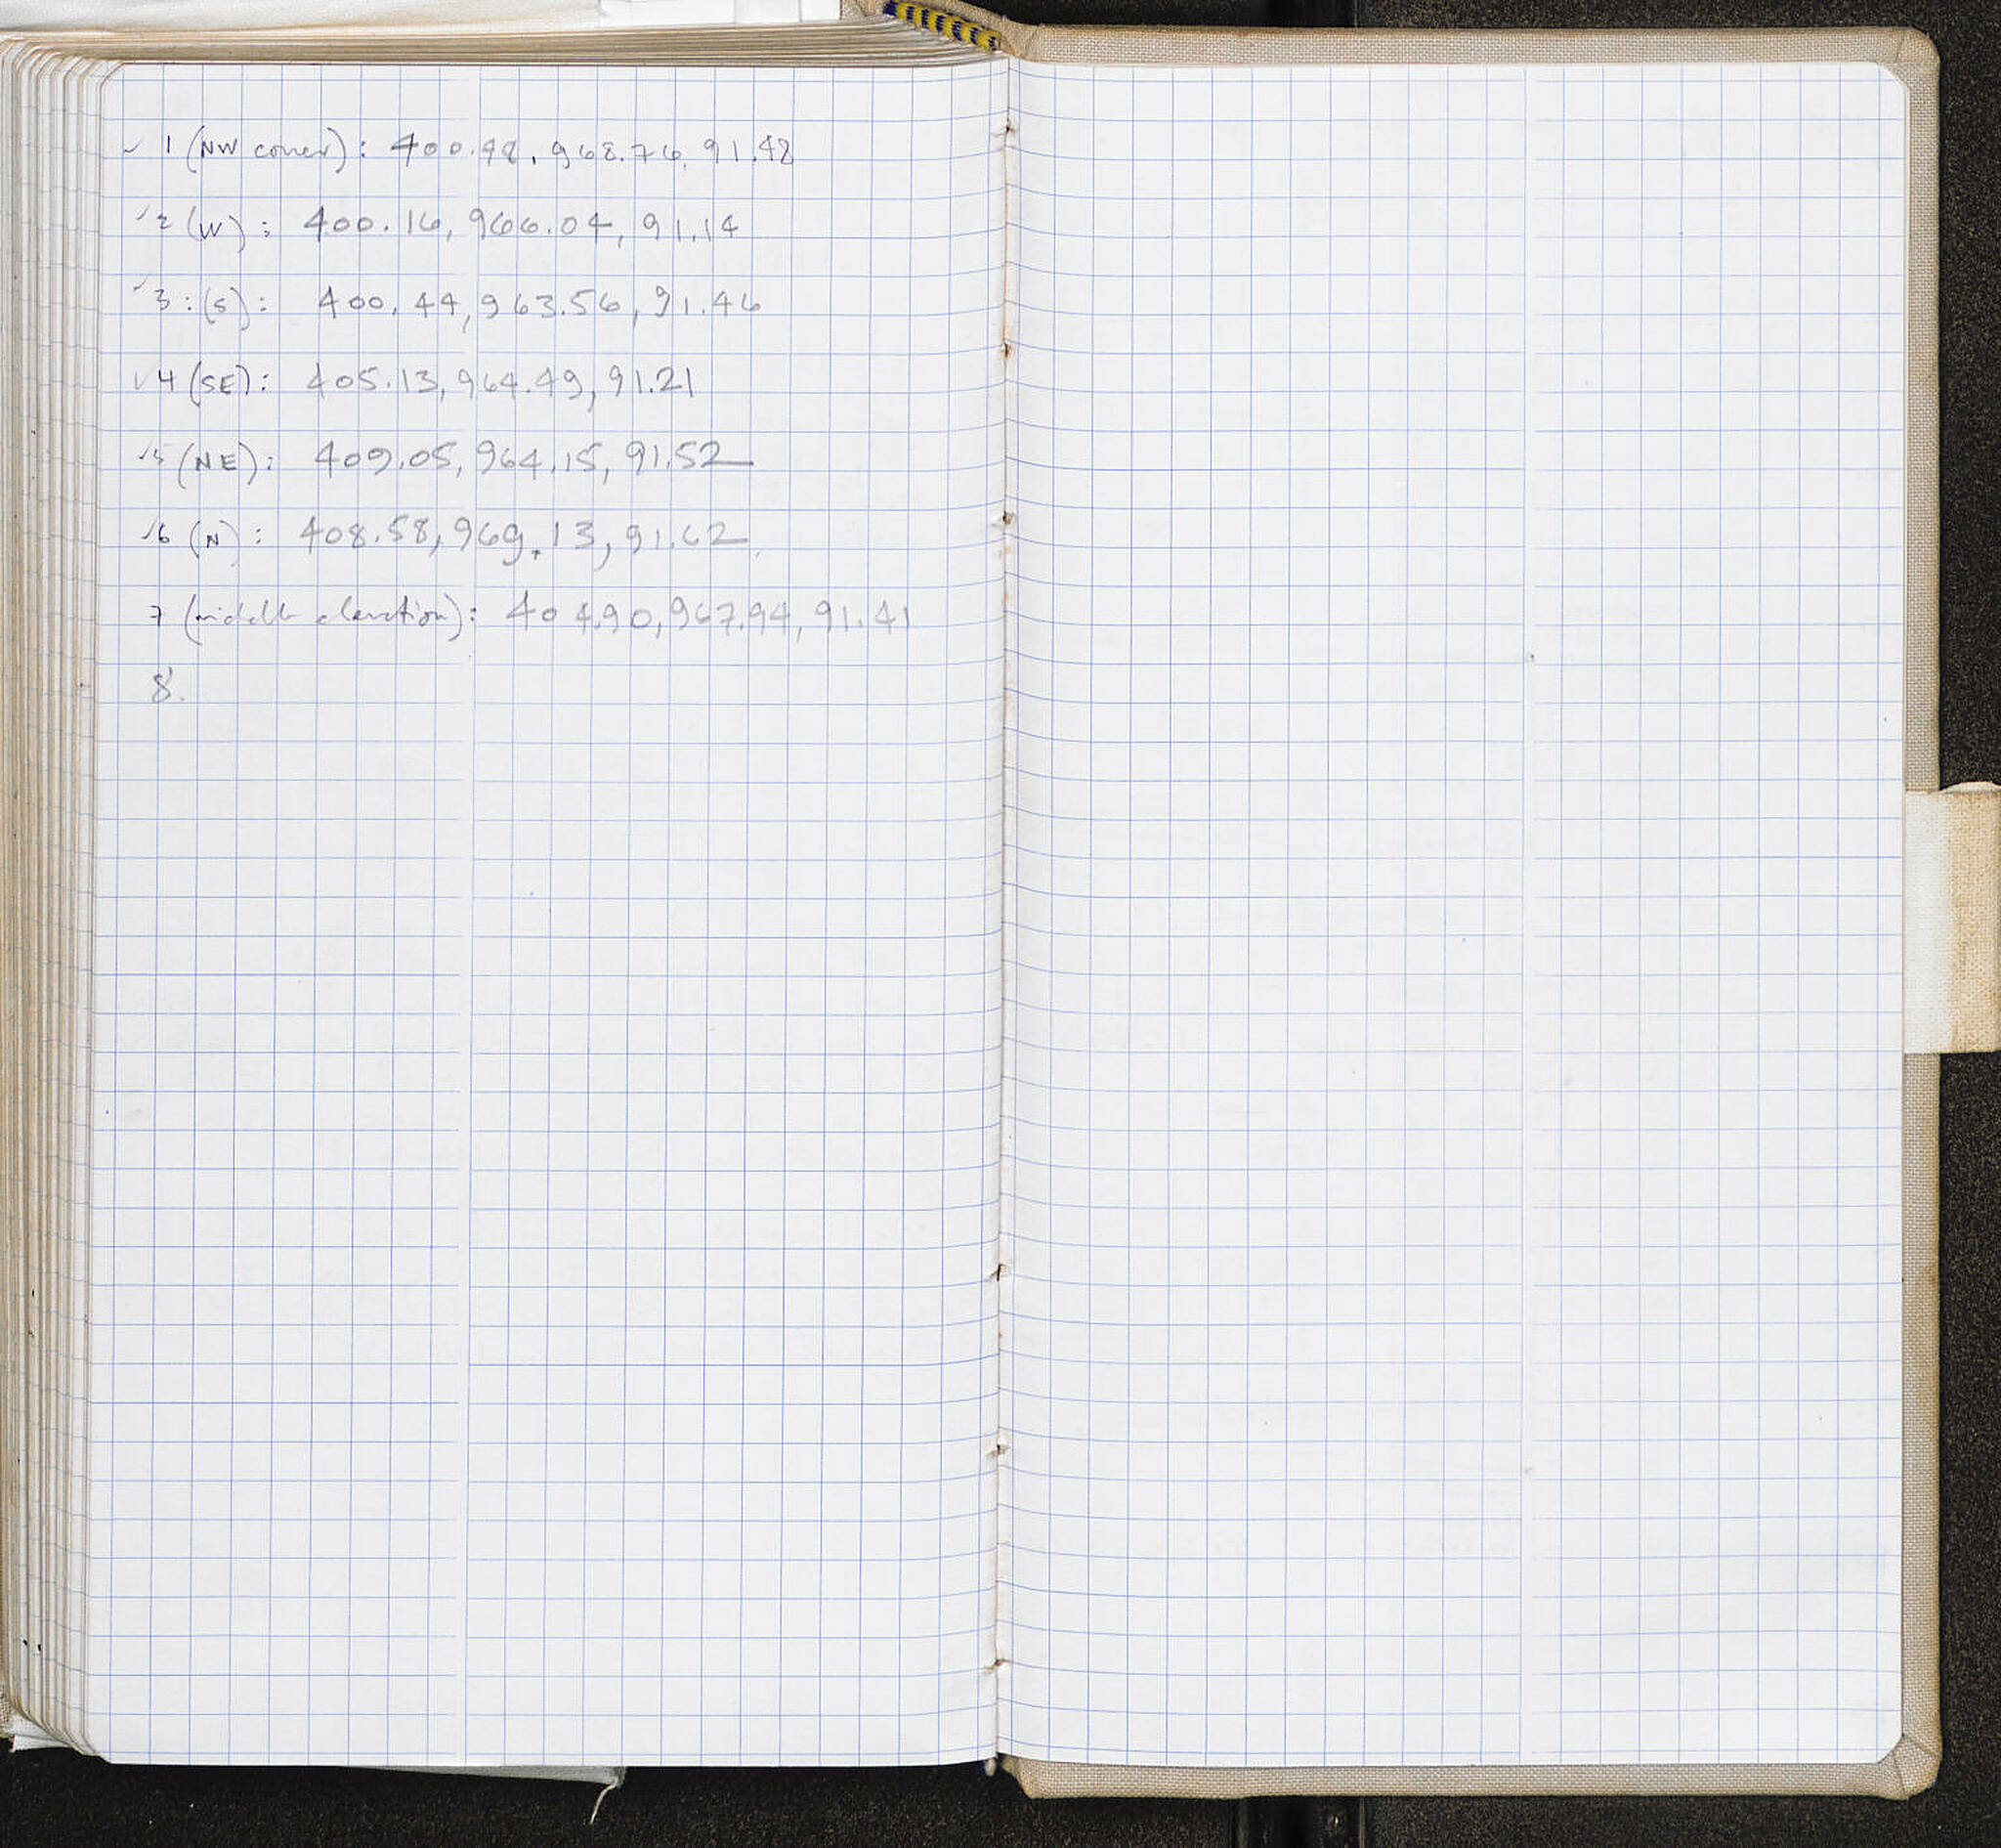 ✓ 1 (NW corner): 400.98, 968.76, 91.48
✓2 (W): 400.16, 966.04, 91.14
✓3: (S): 400.44, 963.56, 91.46
✓4 (SE): 405.13, 964.49, 91.21
✓5 (NE): 409.05, 964.15, 91.52
✓6 (N): 408.58, 969.13, 91.62
7 (middle elevation): 404.90, 967.94, 91.41
8.